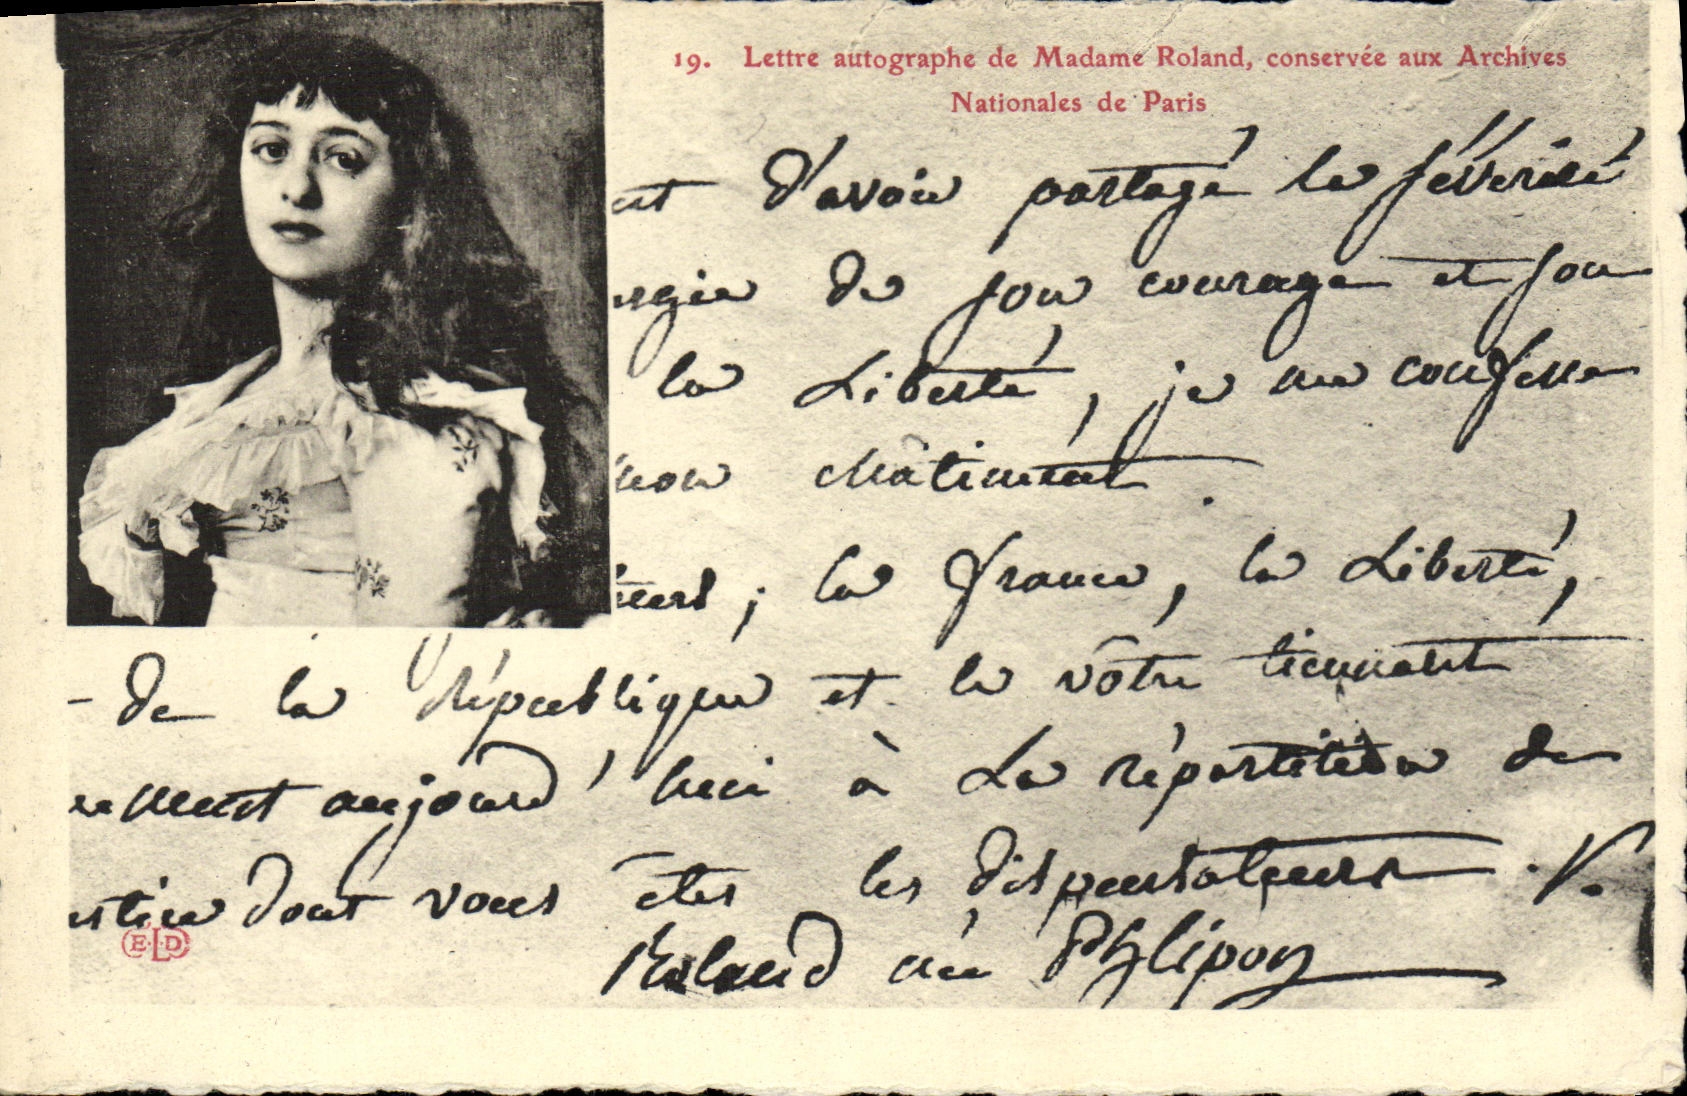 19. Lettre autographe de Madame Roland, conservée aux Archives
Nationales de Paris
et d'avoir partagé la sévérité
ergie de son courage et son
la Liberté, je me confesse
mon châtiment.
; la france, la Liberté,
- de la République et la vôtre tiennent
ement aujourd'hui à La répartition de
ustice dont vous êtes les dispensateurs.
Roland née Phlipon
ELD